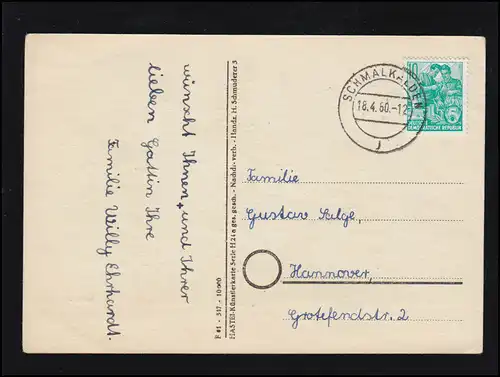 wünscht Ihnen, und Ihrer
lieben Gattin Ihre
Familie Willy Ehrhardt.
F 61 - 517 - 10 000
HASTEI-Künstlerkarte Serie H 21 a ges. gesch. - Nachdr. verb. - Handz. H. Schmuderer 3
SCHMALKALDEN
18.4.60.-12
J
10
DEUTSCHE DEMOKRATISCHE REPUBLIK
Familie
Gustav Salge,
Hannover,
Grotefendstr. 2